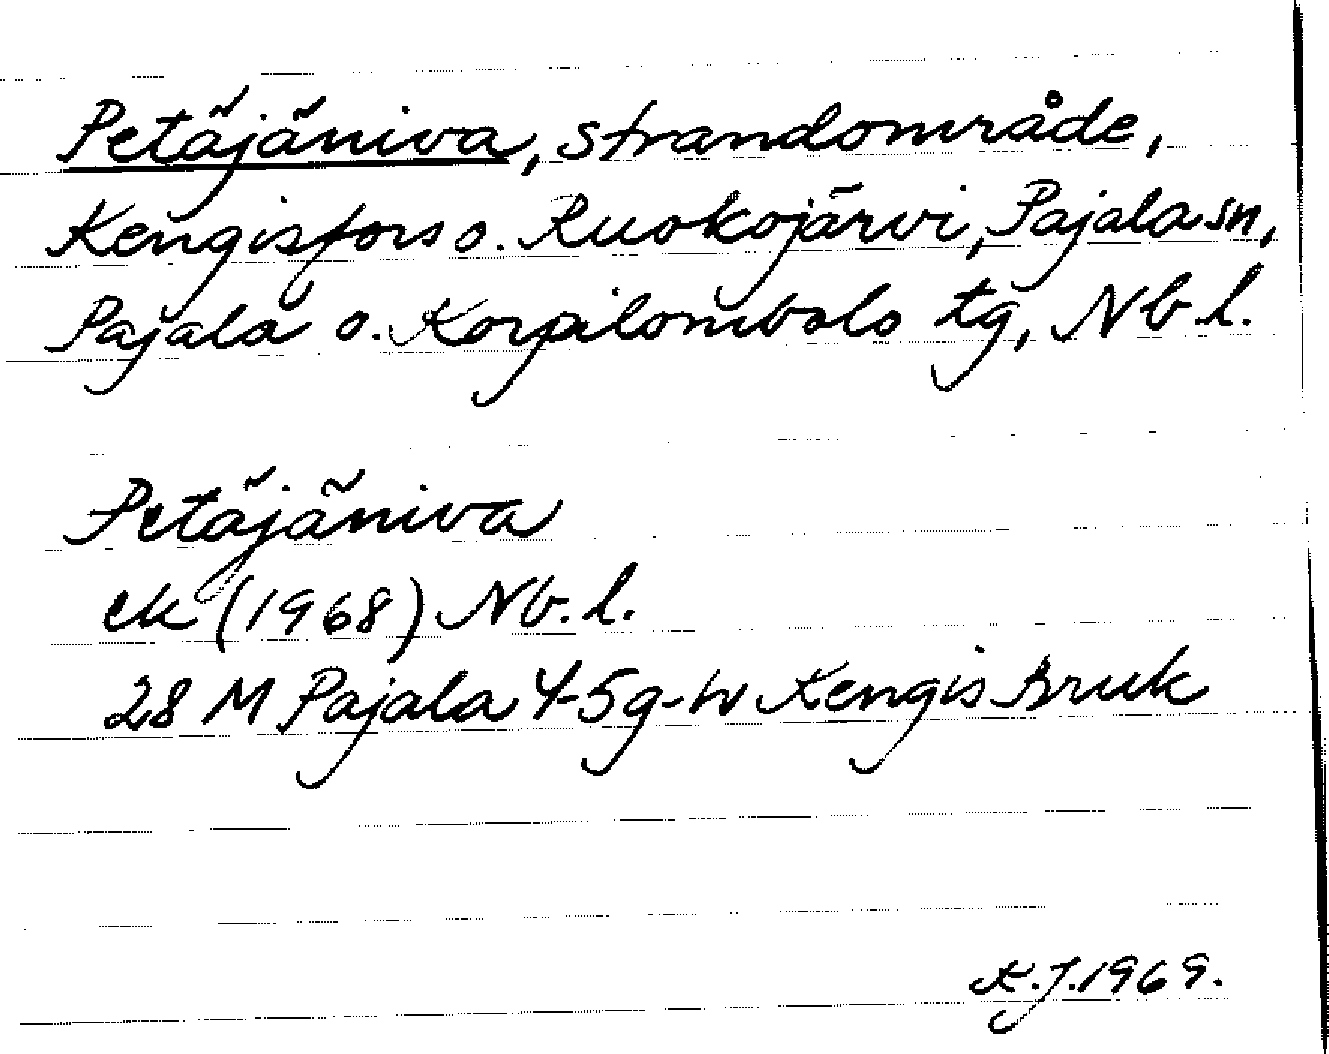 Petäjäniva, strandområde,
Kengisfors o. Ruokojärvi, Pajala sn,
Pajala o. Korpilombolo tg, Nb.l.
Petäjäniva
ek (1968) Nb.l.
28 M Pajala 4-5g-h Kengis Bruk
K.J.1969.